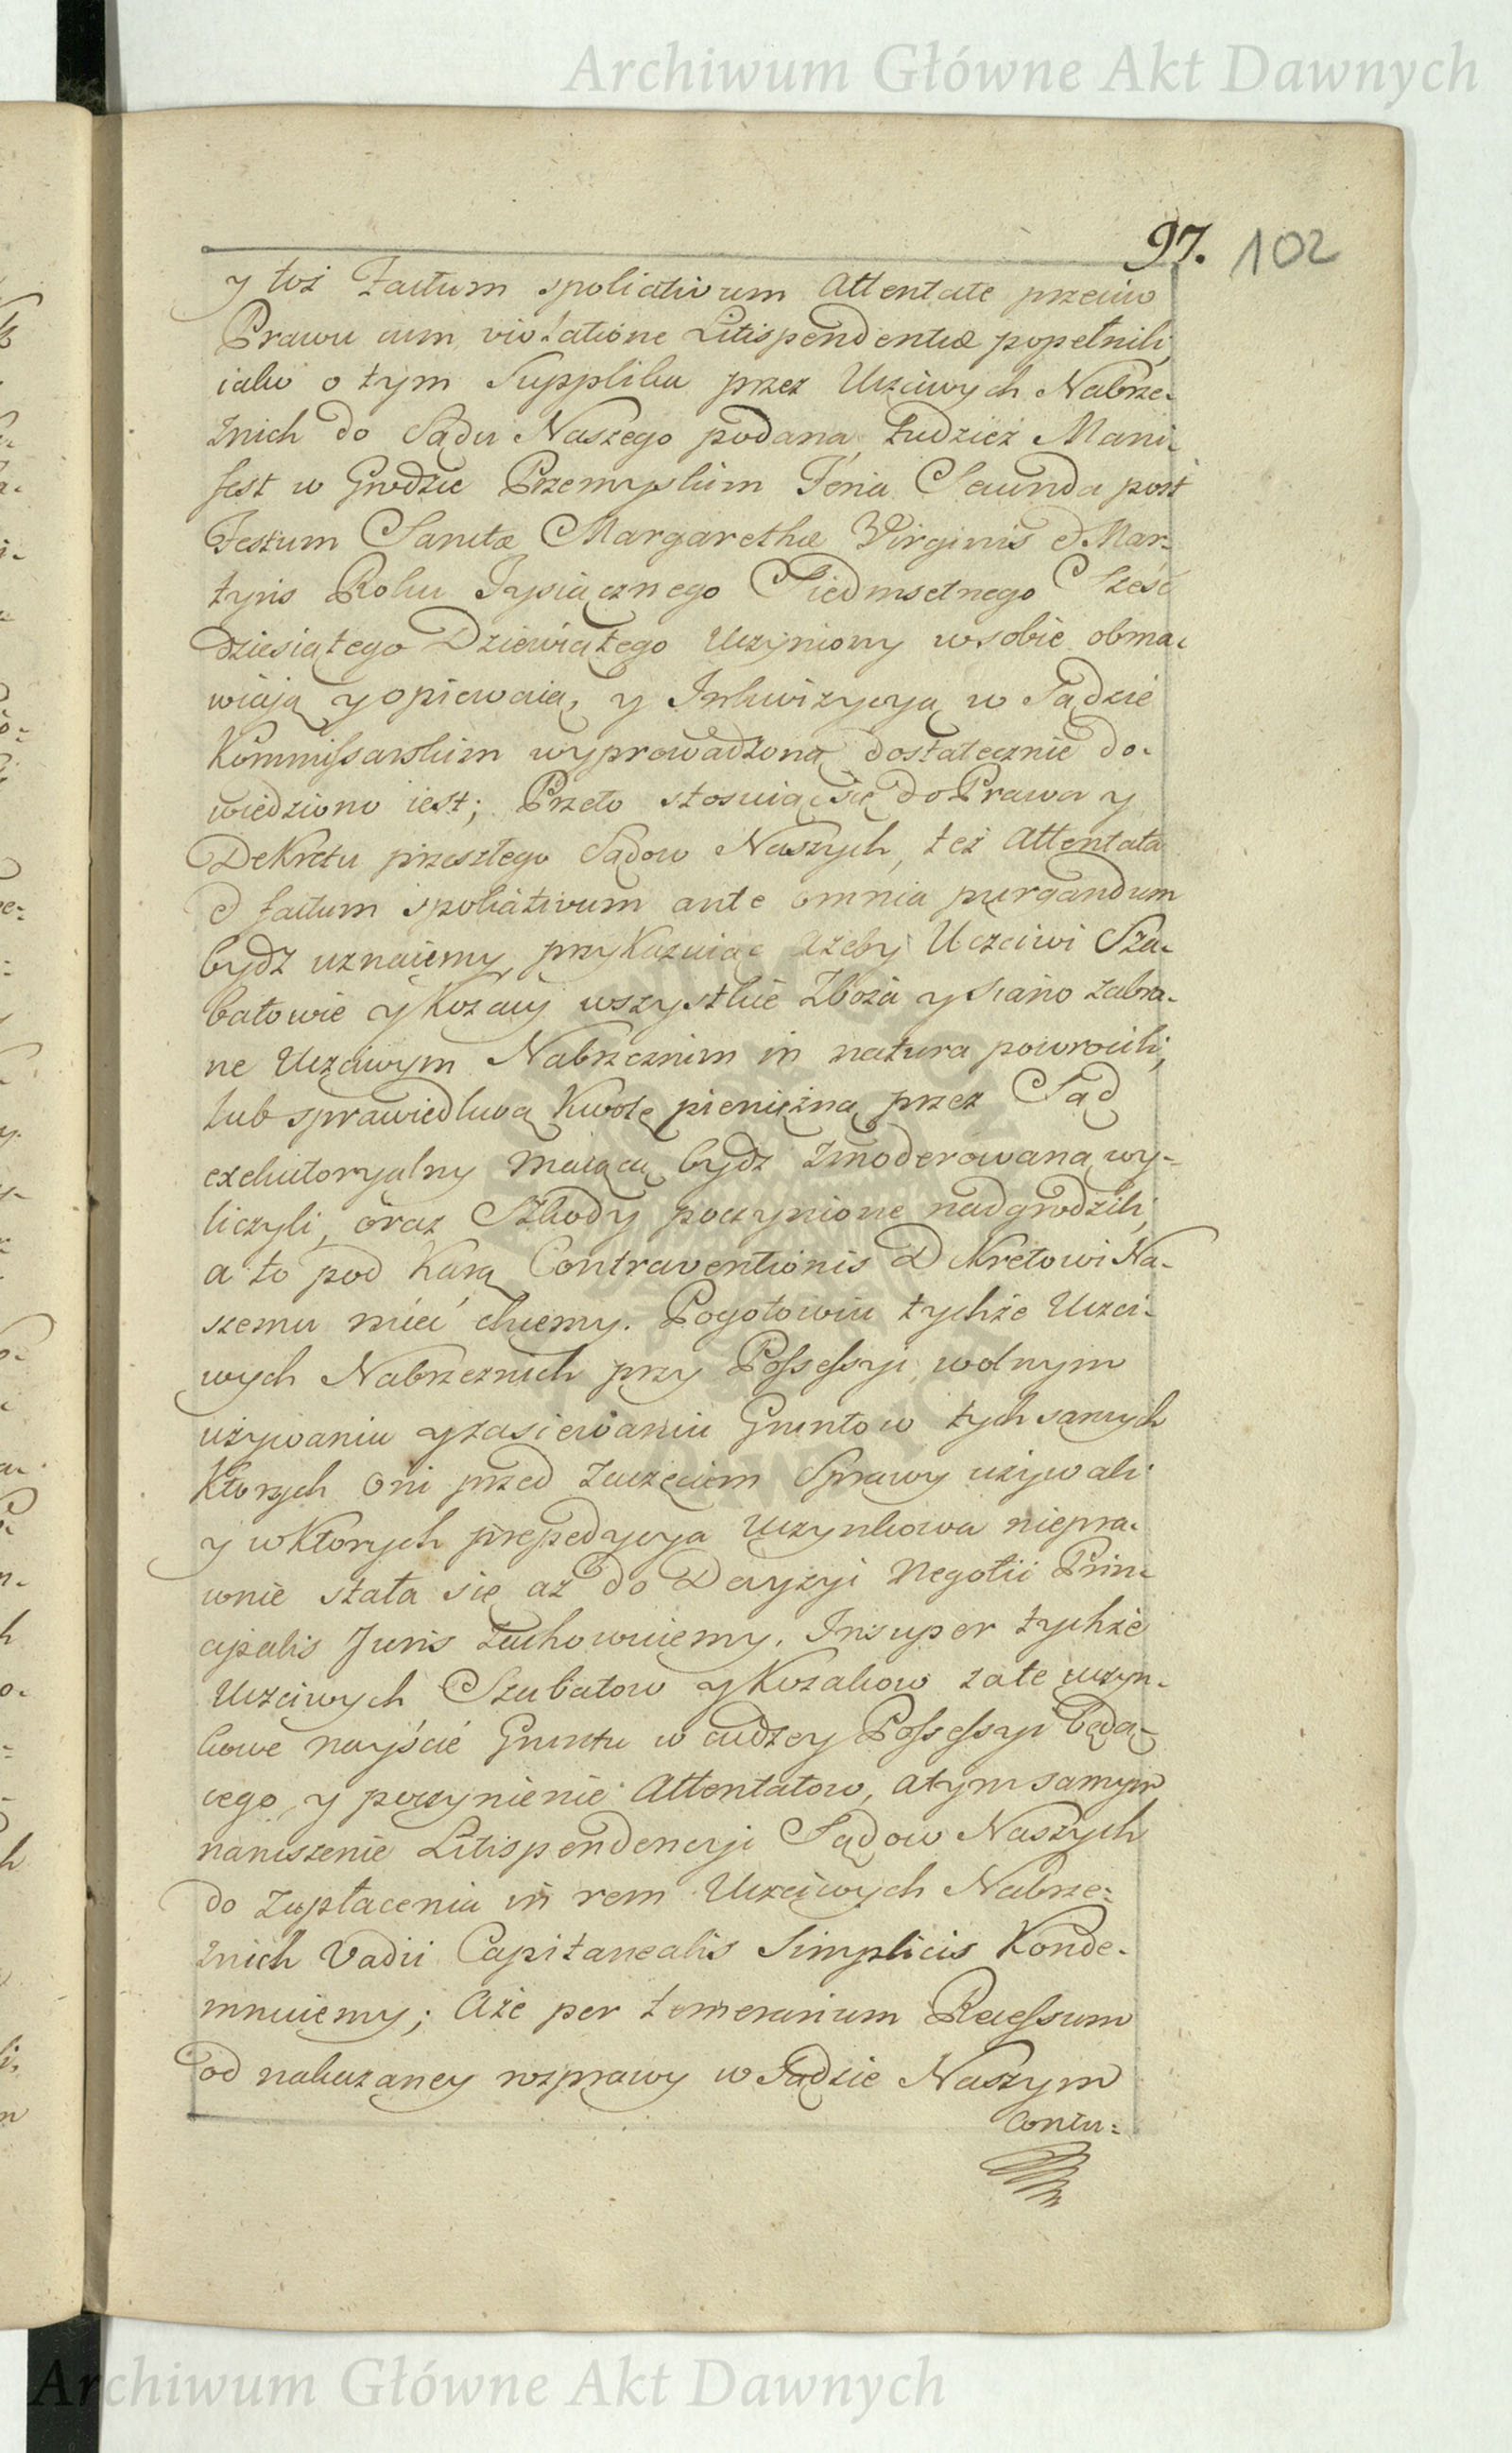 Archiwum Główne Akt Dawnych
97. 102
y toż Factum spoliativum Attentate przeciw
Prawu cum violatione Litispendentiæ popełnili,
iako o tym Supplika przez Uczciwych Nabrze-
żnich do Sądu Naszego podana, tudzież Mani-
fest w Grodzie Przemyslkim Feria Secunda post
Festum Sanctæ Margarethæ Virginis & Mar-
tyris Roku Tysiącznego Siedmsetnego Sześć
dziesiątego Dziewiątego Uczyniony w sobie obma-
wiają y opiewaią, y Inkwizycyą w Sądzie
Kommissarskim wyprowadzoną dostatecznie do-
wiedziono iest; Przeto stosuiąc się do Prawa y
Dekretu przeszłego Sądow Naszych, też Attentata
& factum spoliativum ante omnia purgandum
bydz uznaiemy, przykazuiąc ażeby Uczciwi Sza-
batowie y Kozacy wszystkie Zboża y siano zabra-
ne Uczciwym Nabrzeznim in natura powrocili,
lub sprawiedliwą kwotę pieniężną przez Sąd
exekutoryalny maiącą bydz zmoderowaną wy-
liczyli, oraz Szkody poczynione nadgrodzili,
a to pod karą Contraventionis Dekretowi Na-
szemu mieć chcemy. Pogotowiu tychże Uczci-
wych Nabrzeznich przy Possessyi, wolnym
używaniu y zasiewaniu Gruntow tych samych
ktorych oni przed zaczęciem Sprawy używali
y w ktorych prepedycya Uczynkowa niepra-
wnie stała się aż do Decyzyi Negotii Prin-
cipalis Juris zachowuiemy. Insuper tychże
Uczciwych Szabatow y Kozakow za te uczyn-
kowe nayście Gruntu w cudzey Possessyi będą-
cego, y poczynienie Attentatow, a tym samym
naruszenie Litispendencyi Sądow Naszych
do zapłacenia in rem Uczciwych Nabrze-
żnich Vadii Capitanealis Simplicis Konde-
mnuiemy; Aże per temerarium Recessum
od nakazaney rozprawy w Sądzie Naszym
Contu-
Archiwum Główne Akt Dawnych